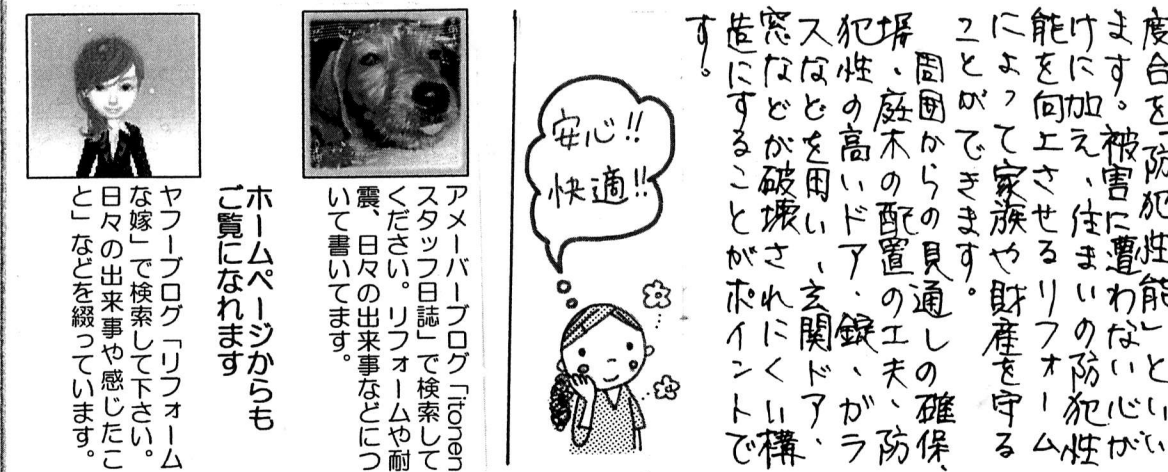 度合を「防犯性能」といい
ます。被害に遭わない心が
けに加え、住まいの防犯性
能を向上させるリフォーム
によって家族や財産を守る
ことができます。
周囲からの見通しの確保、
塀・庭木の配置の工夫、防
犯性の高いドア・錠、ガラ
スなどを用い、玄関ドア、
窓などが破壊されにくい構
造にすることがポイントで
す。
安心!!
快適!!
アメーバーブログ「itonen
スタッフ日誌」で検索して
ください。リフォームや耐
震、日々の出来事などにつ
いて書いてます。
ホームページからも
ご覧になれます
ヤフーブログ「リフォーム
な嫁」で検索して下さい。
日々の出来事や感じたこ
と」などを綴っています。